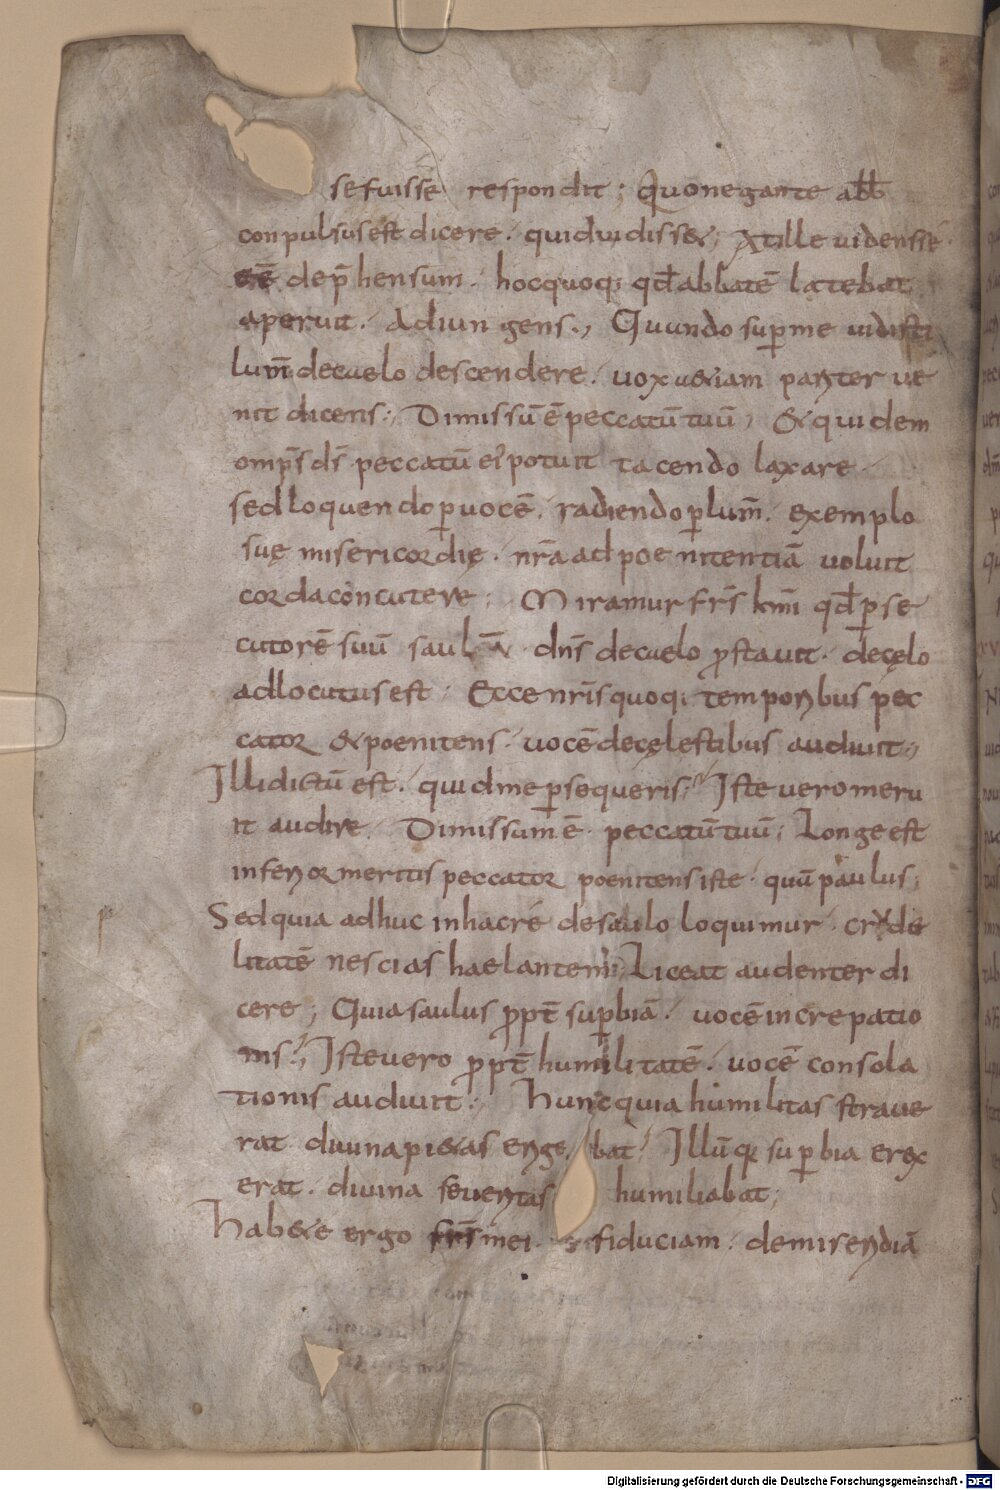 sefuisse respondit ; Quo negante abb
conpulsus est dicere . quid uidisset ; At ille uidens se
ee dep̄hensum . hoc quoq; qđ abbatē latebat
aperuit . Adiungens ., Quando sup me uidisti
lum̄ de caelo descendere . uox & iam pariter ue
nit dicens ; Dimissū ē peccatū tuū ; & quidem
omp̄s d̄s peccatū ei potuit tacendo laxare .
sed loquendo p uocē . radiendo p lum̄ . exemplo
suę misericordię . nr̄a ad poenitentiā uoluit
corda concutere ; Miramur fr̄s km̄i qđ pse
cutorē suū saulū dn̄s de caelo pstrauit . de cęlo
adlocutus est ; Ecce nr̄is quoq; temporibus pec
cator & poenitens . uocē de cęlestibus audiuit .,
Illi dictū est . quid me psequeris ; Iste uero meru
it audire . Dimissum ē peccatū tuū ; Longe est
inferior meritis peccator poenitens iste . quā paulus ;
Sed quia adhuc in hac ré de saulo loquimur . crude
litatē nescias haelantem ; Liceat audenter di
cere ; Quia saulus ppt̄ supbiā . uocē increpatio
nis ., Iste uero ppt̄ humilitatē . uocē consola
tionis audiuit ; Hunc quia humilitas straue
rat diuina pi&as erigebat ; Illūq; supbia erex
erat . diuina seueritas humiliabat ;
Hab&e ergo fr̄s mei . fiduciam . de miseridiā
Digitalisierung gefördert durch die Deutsche Forschungsgemeinschaft - DFG